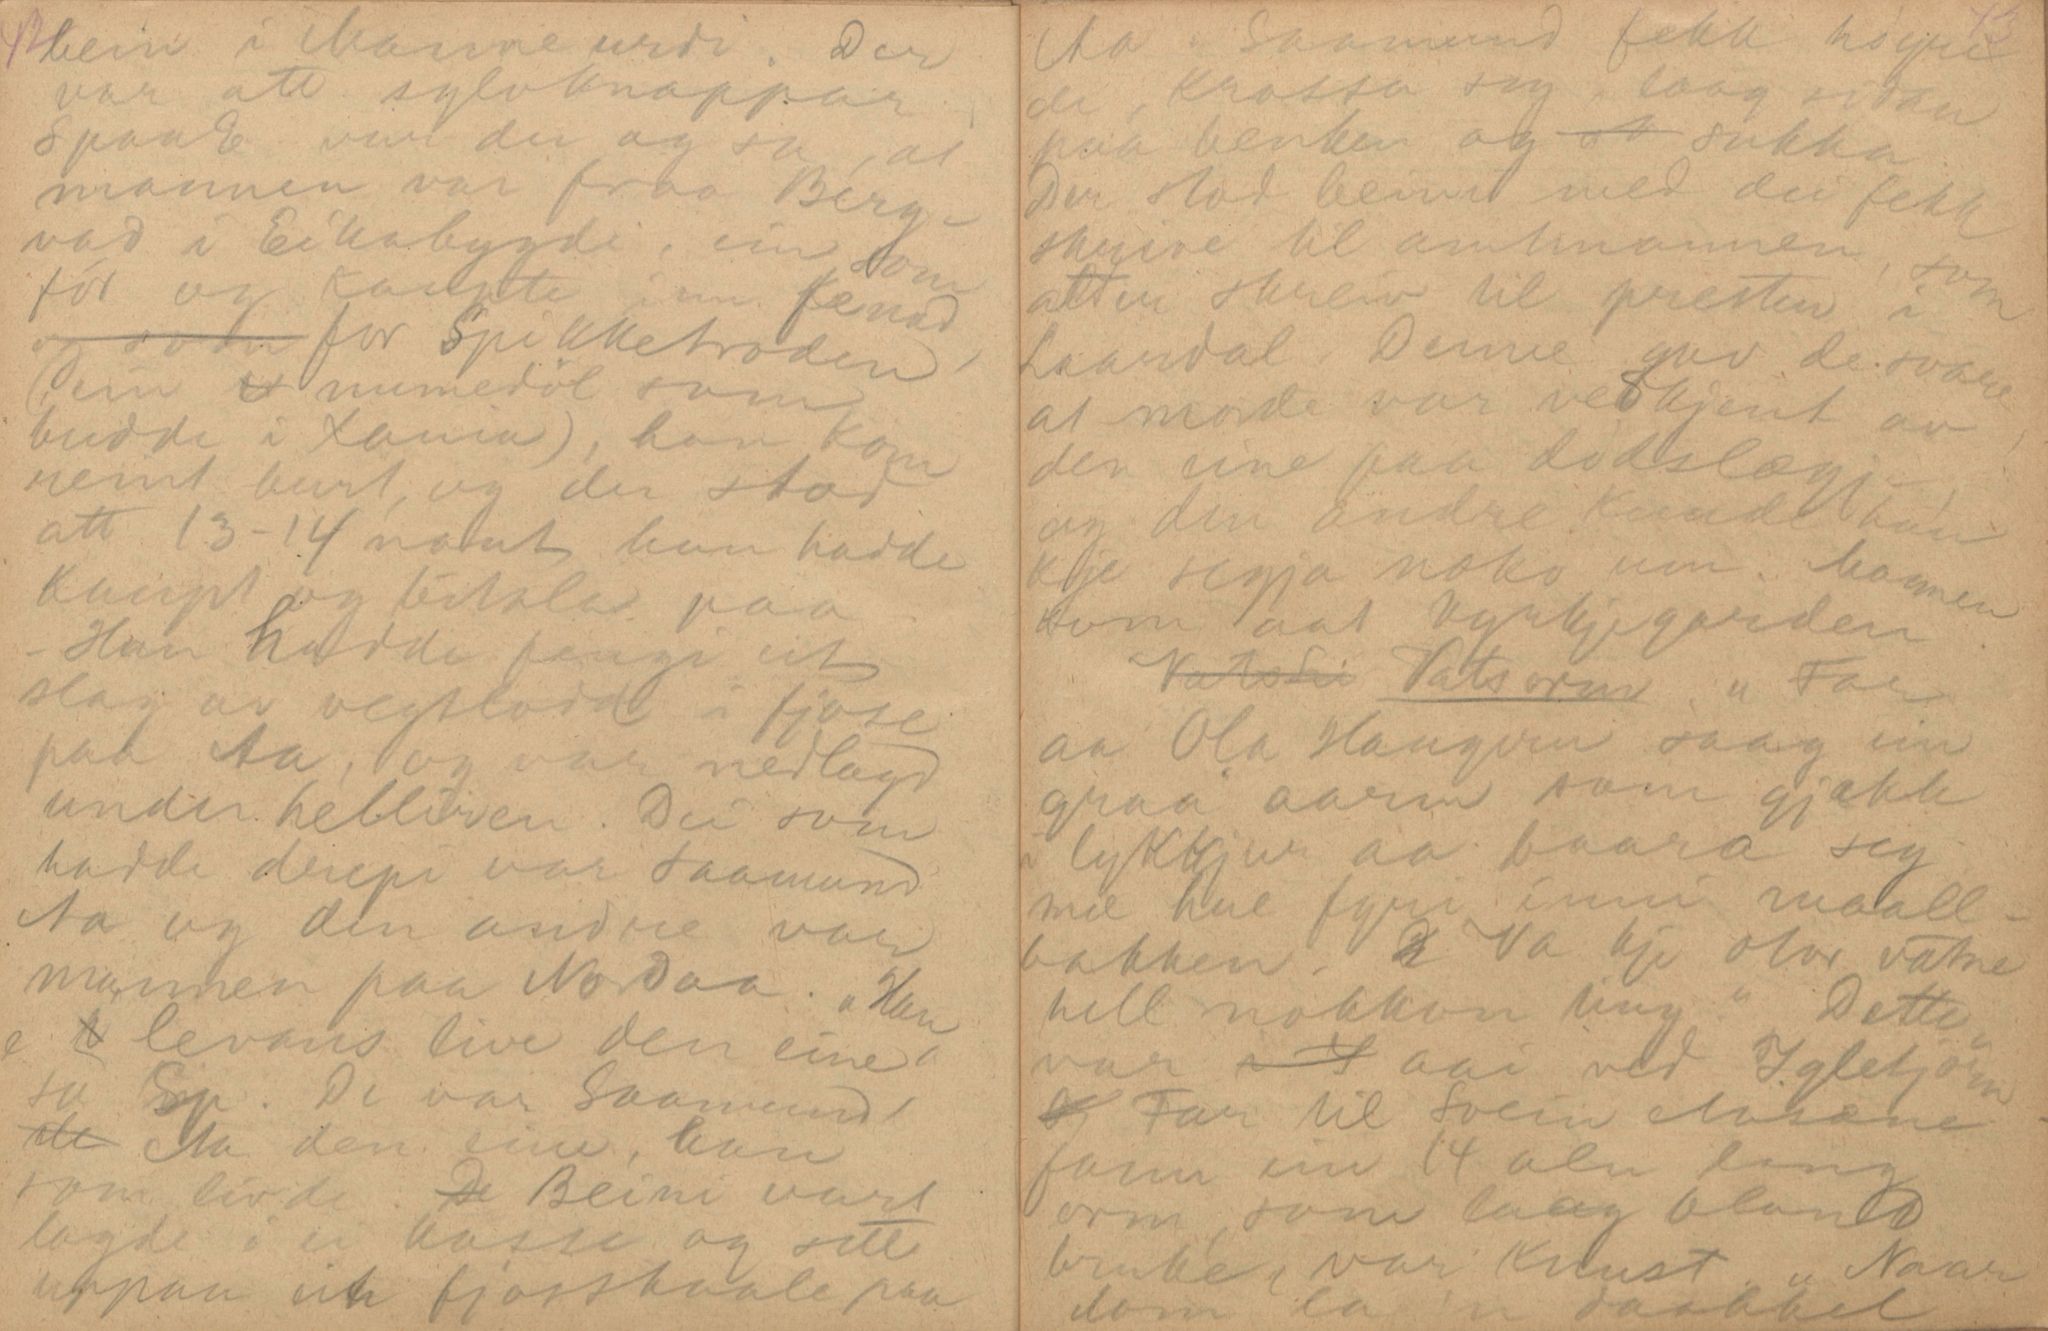 42
bein i Manneurdi. Der
var att sylvknappar
Spaake var der og sa, at
mannen var fraa Berg-
vad i Eikabygdi, ein som
fór og kaupte inn fenad
og sodn for Spikketroden,
(ein numedöl som
budde i Xania), han kom
reint burt, og der stod
att 13-14 naut han hadde
kaupt og betala paa
- Han hadde fengi eit
slag av vegtlodd i fjose
paa Aa, og var nedlagd
under helliren. Dei som
hadde drepi var Saamund
Aa og den andre var
mannen paa Nordaa. "Han
e levans live den eine"
sa Sp. De var Saamund
Aa den eine, han
som livde. De Beini vart
lagde i ei kasse og sett
uppaa eit fjosskaale paa
43
Aa. Saamund fekk höyre
de, krossa seg, laag sidan
paa benken og sukka
Der stod beini med dei fekk
skrive til amtmannen, som
atter skreiv til presten i
Laardal. Denne gav de svare
at morde var vedkjent av
den eine paa dödslægj-,
og den andre kunde han
kje segja noko um. Mannen
kom aat kyrkjegarden
Vatsorm "Far
aa Ola Haugen saag ein
graa aarm som gjekk
i lykkjur aa baara seg
me hue fyri inni maall-
bakken. Va kje olor vatne
hell nokkon ting." Dette
var aai ved Igletjörn
Far til Svein Aasane
fann ein 14 aln lang
orm, som laag bland
bruke, var kunst. "Naar
dom la 'n daabbel